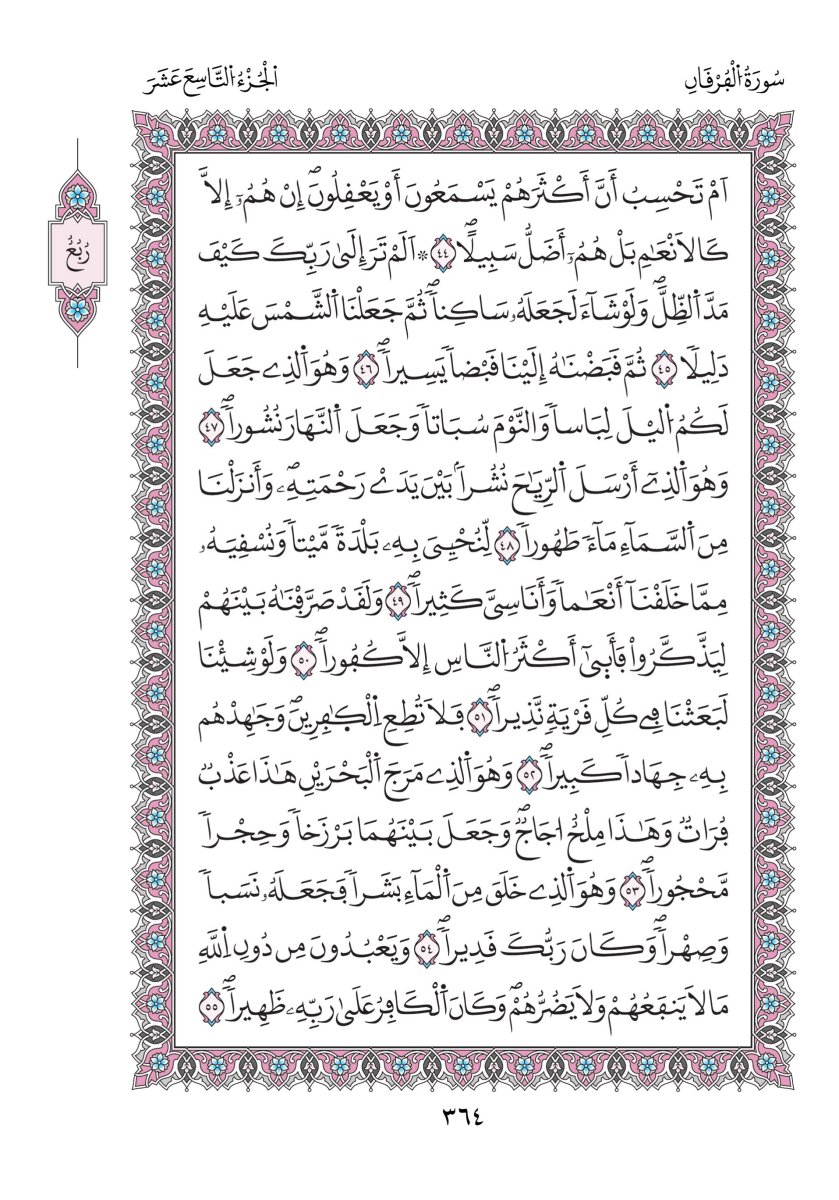 سُورَةُ اُ۬لْفُرْقَانِ
اَ۬لْجُزْءُ اُ۬لتَّاسِعَ عَشَرَ
رُبُعُ
اَمْ تَحْسِبُ أَنَّ أَكْثَرَهُمْ يَسْمَعُونَ أَوْ يَعْفِلُونَۖ إِنْ هُمُۥٓ إِلاَّ
كَالاَنْعَٰمِ بَلْ هُمُۥٓ أَضَلُّ سَبِيلًاۖ ٤٤ ۞ اَلَمْ تَرَ إِلَىٰ رَبِّكَ كَيْفَ
مَدَّ اَ۬لظِّلَّۖ وَلَوْ شَآءَ لَجَعَلَهُۥ سَاكِناٗۖ ثُمَّ جَعَلْنَا اَ۬لشَّمْسَ عَلَيْهِ
دَلِيلًا ٤٥ ثُمَّ فَبَضْنَٰهُ إِلَيْنَا فَبْضاٗ يَسِيراٗۖ ٤٦ وَهُوَ اَ۬لذِے جَعَلَ
لَكُمُ اُ۬ليْلَ لِبَاساٗ وَالنَّوْمَ سُبَاتاٗ وَجَعَلَ اَ۬لنَّهَارَ نُشُوراٗۖ ٤٧
وَهُوَ اَ۬لذِےٓ أَرْسَلَ اَ۬لرِّيَٰحَ نُشُراَۢ بَيْنَ يَدَےْ رَحْمَتِهِۦۖ وَأَنزَلْنَا
مِنَ اَ۬لسَّمَآءِ مَآءٗ طَهُوراٗ ٤٨ لِّنُحْيِۦَ بِهِۦ بَلْدَةٗ مَّيْتاٗ وَنُسْفِيَهُۥ
مِمَّا خَلَفْنَآ أَنْعَٰماٗ وَأَنَاسِيَّ كَثِيراٗۖ ٤٩ وَلَفَدْ صَرَّفْنَٰهُ بَيْنَهُمْ
لِيَذَّكَّرُواْ فَأَبَىٰٓ أَكْثَرُ اُ۬لنَّاسِ إِلاَّ كُفُوراٗۖ ٥٠ وَلَوْ شِئْنَا
لَبَعَثْنَا فِے كُلِّ فَرْيَةٖ نَّذِيراٗۖ ٥١ فَلاَ تُطِعِ اِ۬لْكٰ۪فِرِينَۖ وَجَٰهِدْهُم
بِهِۦ جِهَاداٗ كَبِيراٗۖ ٥٢ وَهُوَ اَ۬لذِے مَرَجَ اَ۬لْبَحْرَيْنِ هَٰذَا عَذْبٞ
فُرَاتٞ وَهَٰذَا مِلْحٌ ا۟جَاجٞۖ وَجَعَلَ بَيْنَهُمَا بَرْزَخاٗ وَحِجْراٗ
مَّحْجُوراٗۖ ٥٣ وَهُوَ اَ۬لذِے خَلَقَ مِنَ اَ۬لْمَآءِ بَشَراٗ فَجَعَلَهُۥ نَسَباٗ
وَصِهْراٗۖ وَكَانَ رَبُّكَ فَدِيراٗۖ ٥٤ وَيَعْبُدُونَ مِن دُونِ اِ۬للَّهِ
مَا لاَ يَنفَعُهُمْ وَلاَ يَضُرُّهُمْۖ وَكَانَ اَ۬لْكَافِرُ عَلَىٰ رَبِّهِۦ ظَهِيراٗۖ ٥٥
٣٦٤